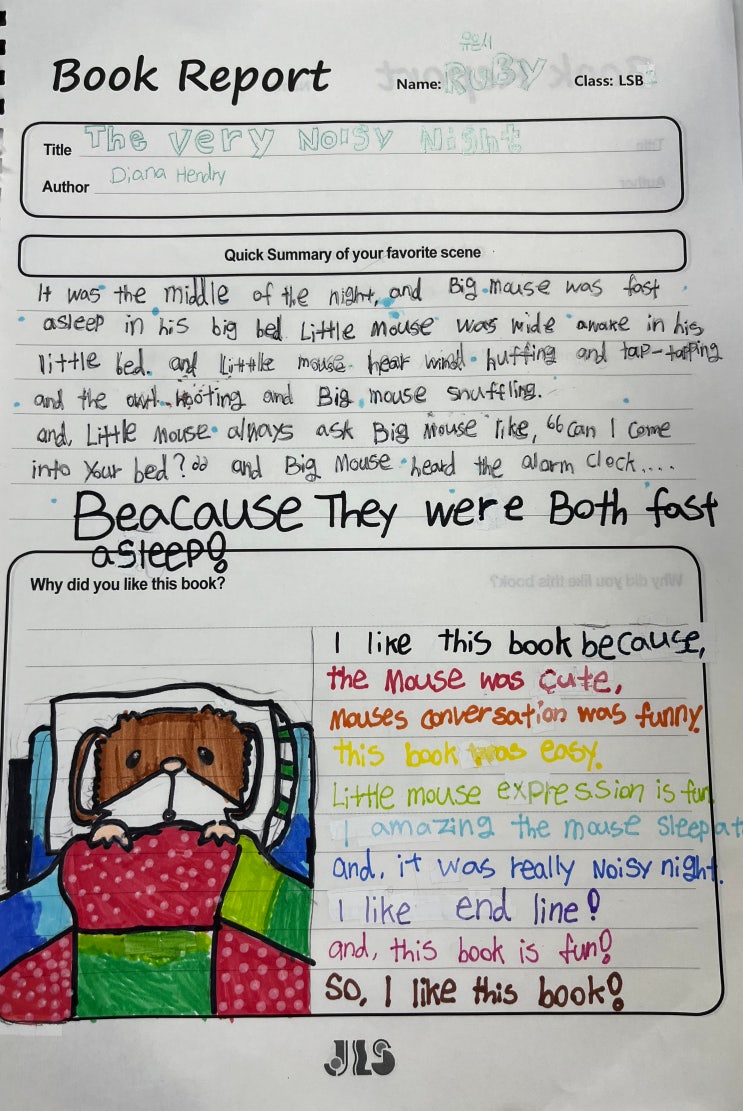 유은서
Book Report Name: RUBY Class: LSB
Title The Very Noisy Night
Author Diana Hendry
Quick Summary of your favorite scene
It was the middle of the night, and Big mouse was fast
asleep in his big bed Little Mouse was wide awake in his
little bed. and Little mouse hear wind huffing and tap-tapping
and the owl hooting and Big mouse snuffling.
and, Little Mouse always ask Big Mouse like, "can I come
into your bed?" and Big Mouse heard the alarm clock....
Beacause They were Both fast
asleep!
Why did you like this book?
I like this book because,
the Mouse was cute,
Mouses conversation was funny.
this book was easy.
Little mouse expression is fun
I amazing the mouse sleep at
and, it was really Noisy night.
I like end line!
and, this book is fun!
So, I like this book!
JLS